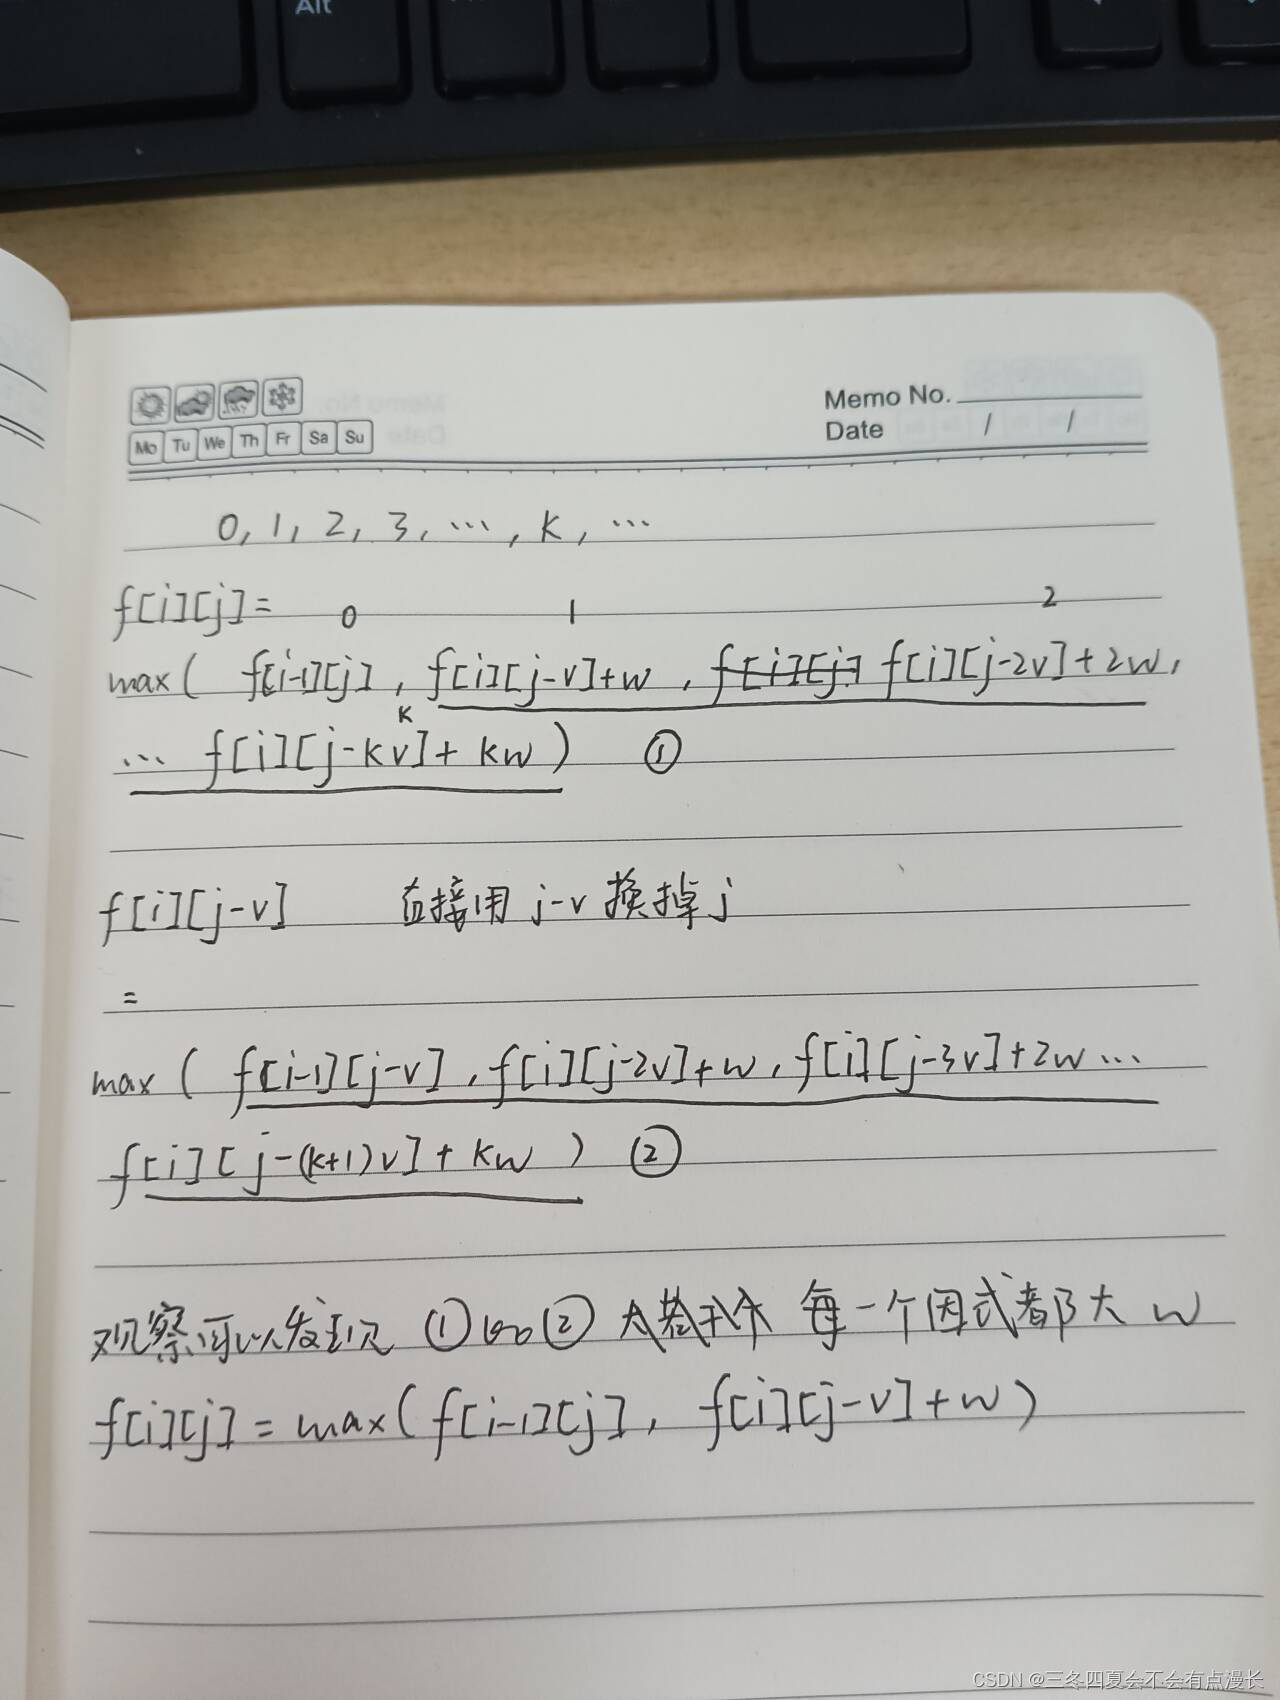 Alt
Memo No.
Mo Tu We Th Fr Sa Su
Date / /
0, 1, 2, 3, …, k, …
f[i][j]=
0 1 2
max( f[i-1][j], f[i][j-v]+w, f[i][j] f[i][j-2v]+2w,
k
… f[i][j-kv]+kw) ①
f[i][j-v] 直接用 j-v 换掉 j
=
max( f[i-1][j-v], f[i][j-2v]+w, f[i][j-3v]+2w…
f[i][j-(k+1)v]+kw) ②
观察可以发现 ①的② 每一个因式都大 w
f[i][j]=max(f[i-1][j], f[i][j-v]+w)
CSDN @三冬四夏会不会有点漫长